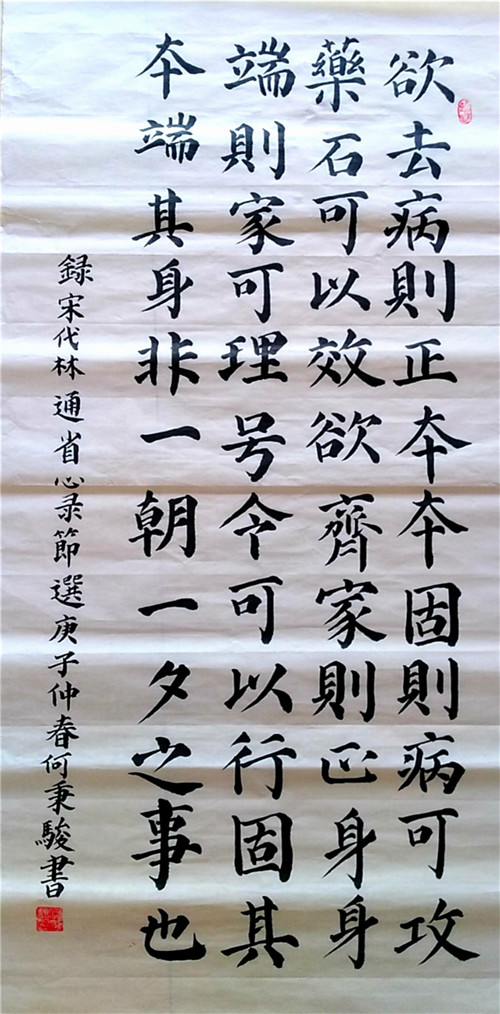 欲去病則正夲夲固則病可攻
藥石可以效欲齊家則正身身
端則家可理号令可以行固其
夲端其身非一朝一夕之事也
録宋代林通省心录節選庚子仲春何秉駿書